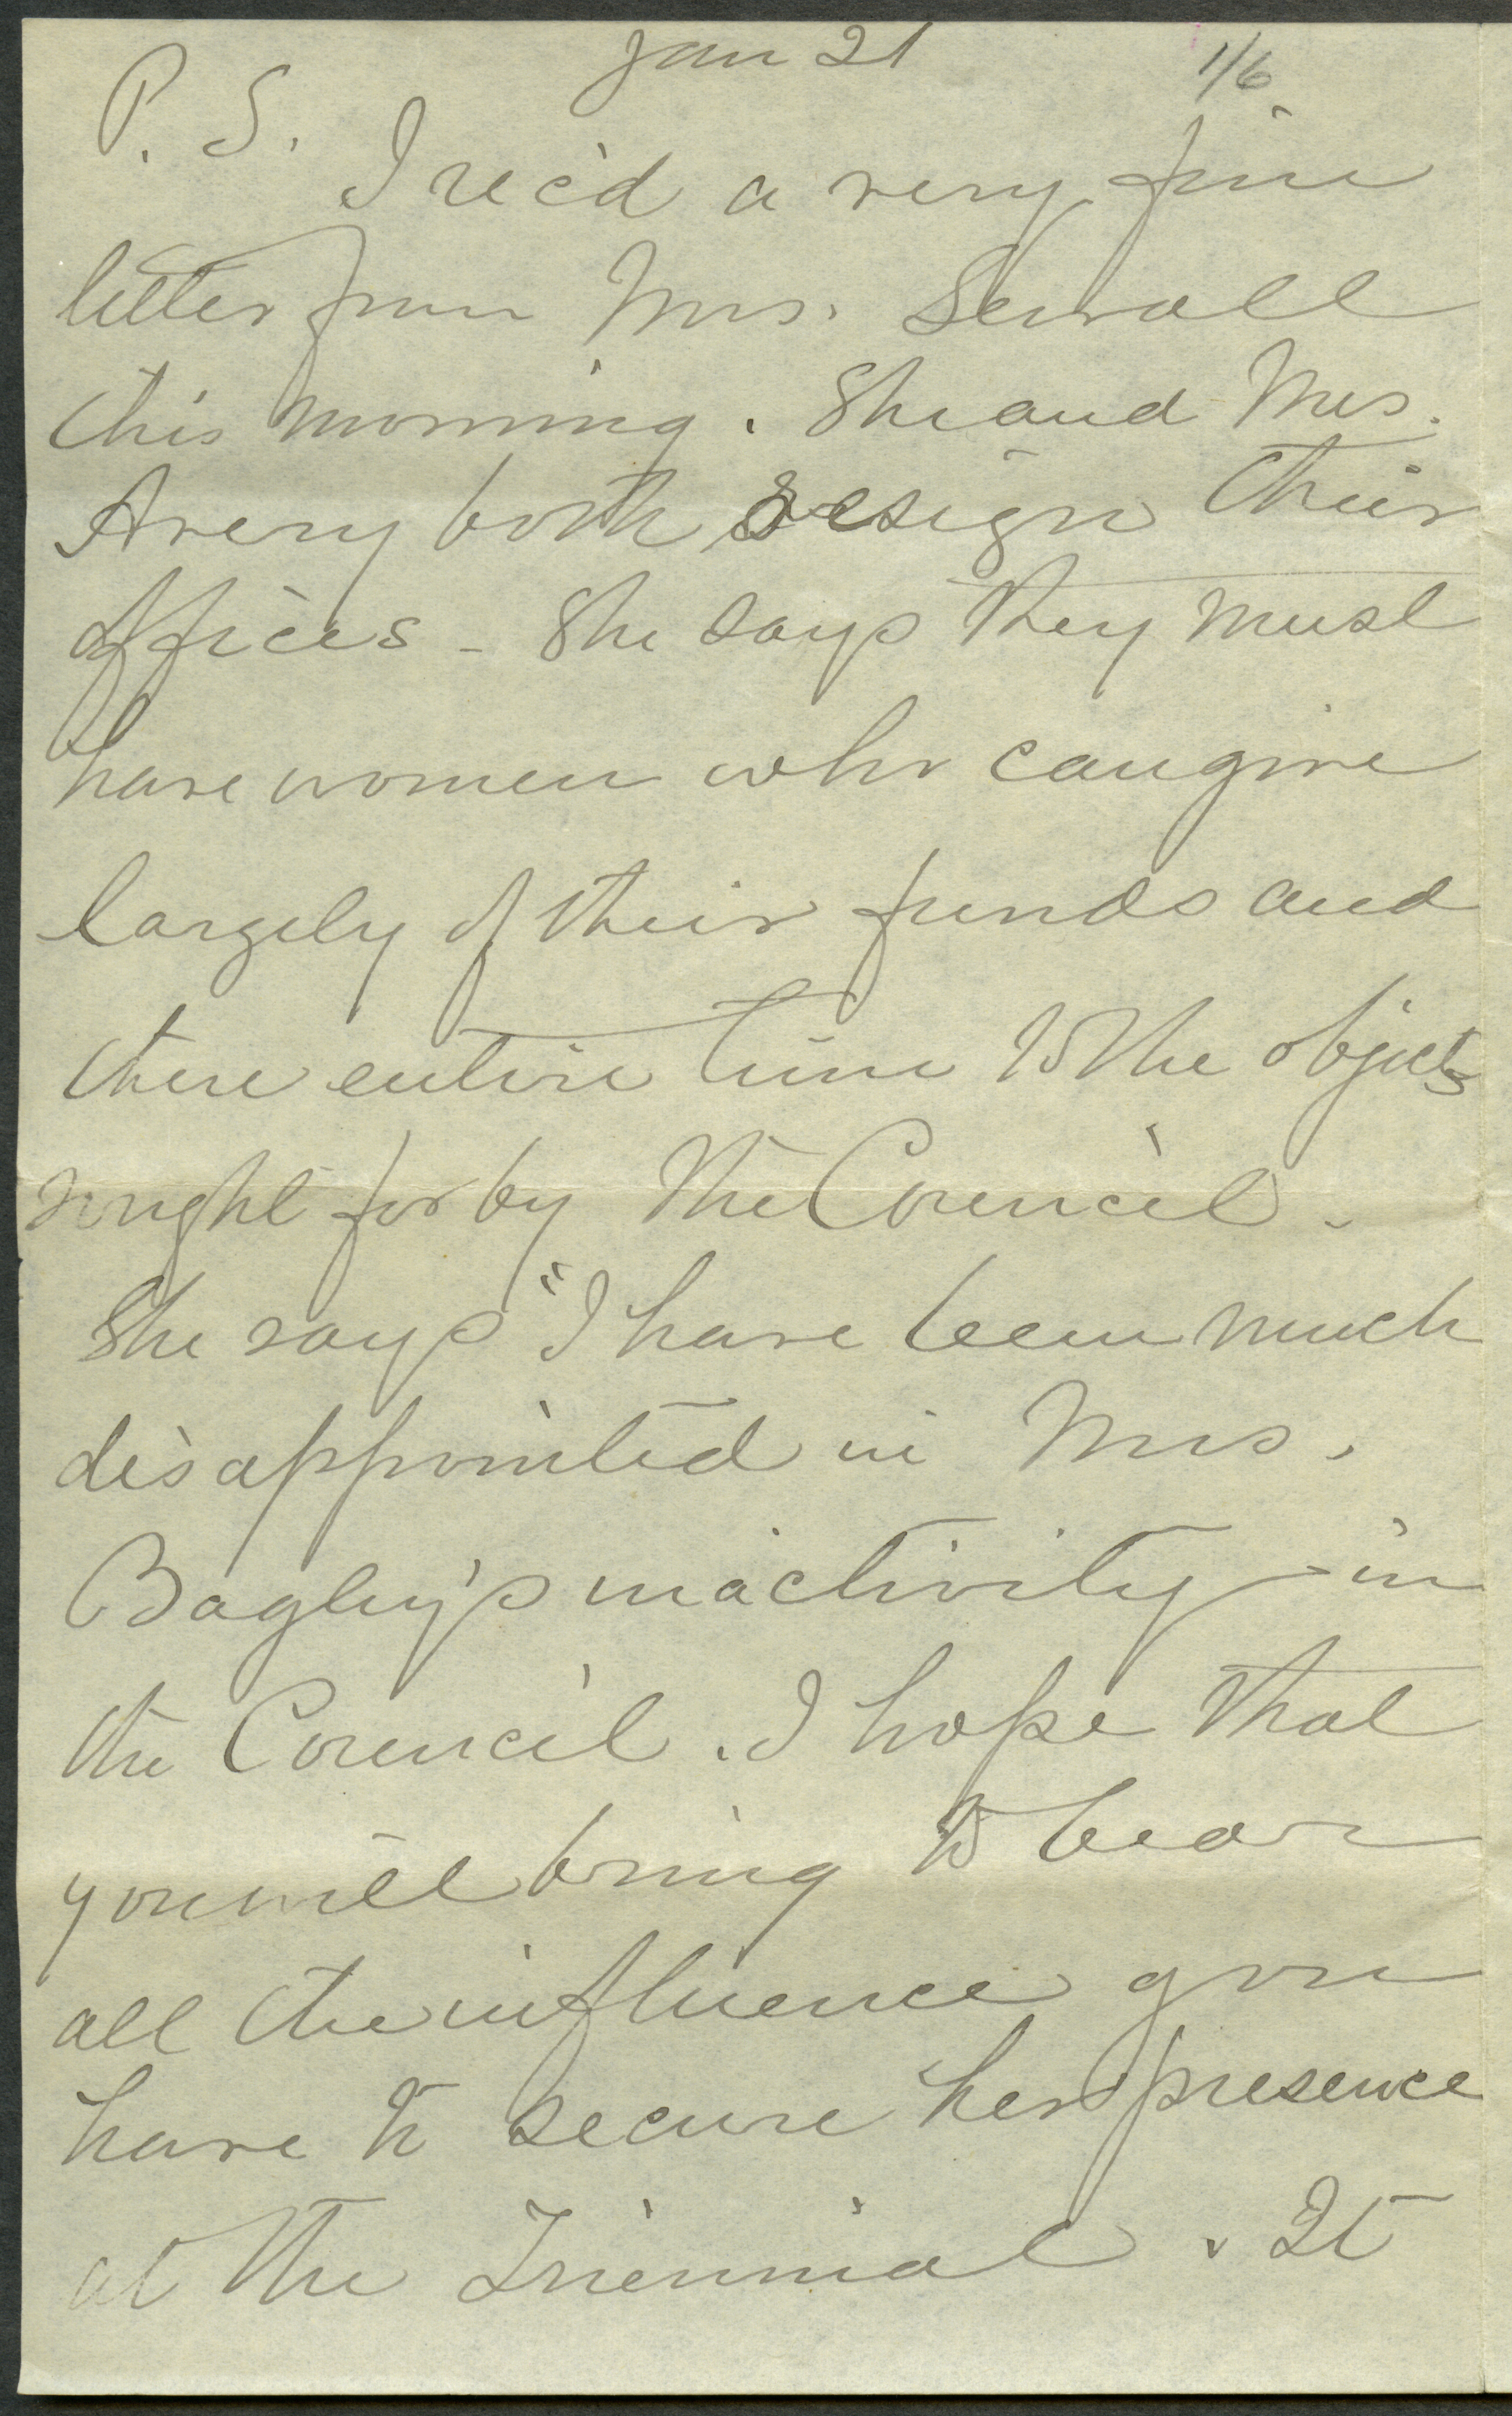 Jan 21
1/6
P. S.
I rec'd a very fine
letter from Mrs. Sewall
this morning. She and Mrs.
Avery both resign their
offices - She says they must
have women who can give
largely of their funds and
there entire time to the objects
sought for by the Council.
She says "I have been much
disappointed in Mrs.
Bagley's inactivity in
the Council. I hope that
you will bring to bear
all the influence you
have to secure her presence
at the Triennial. It